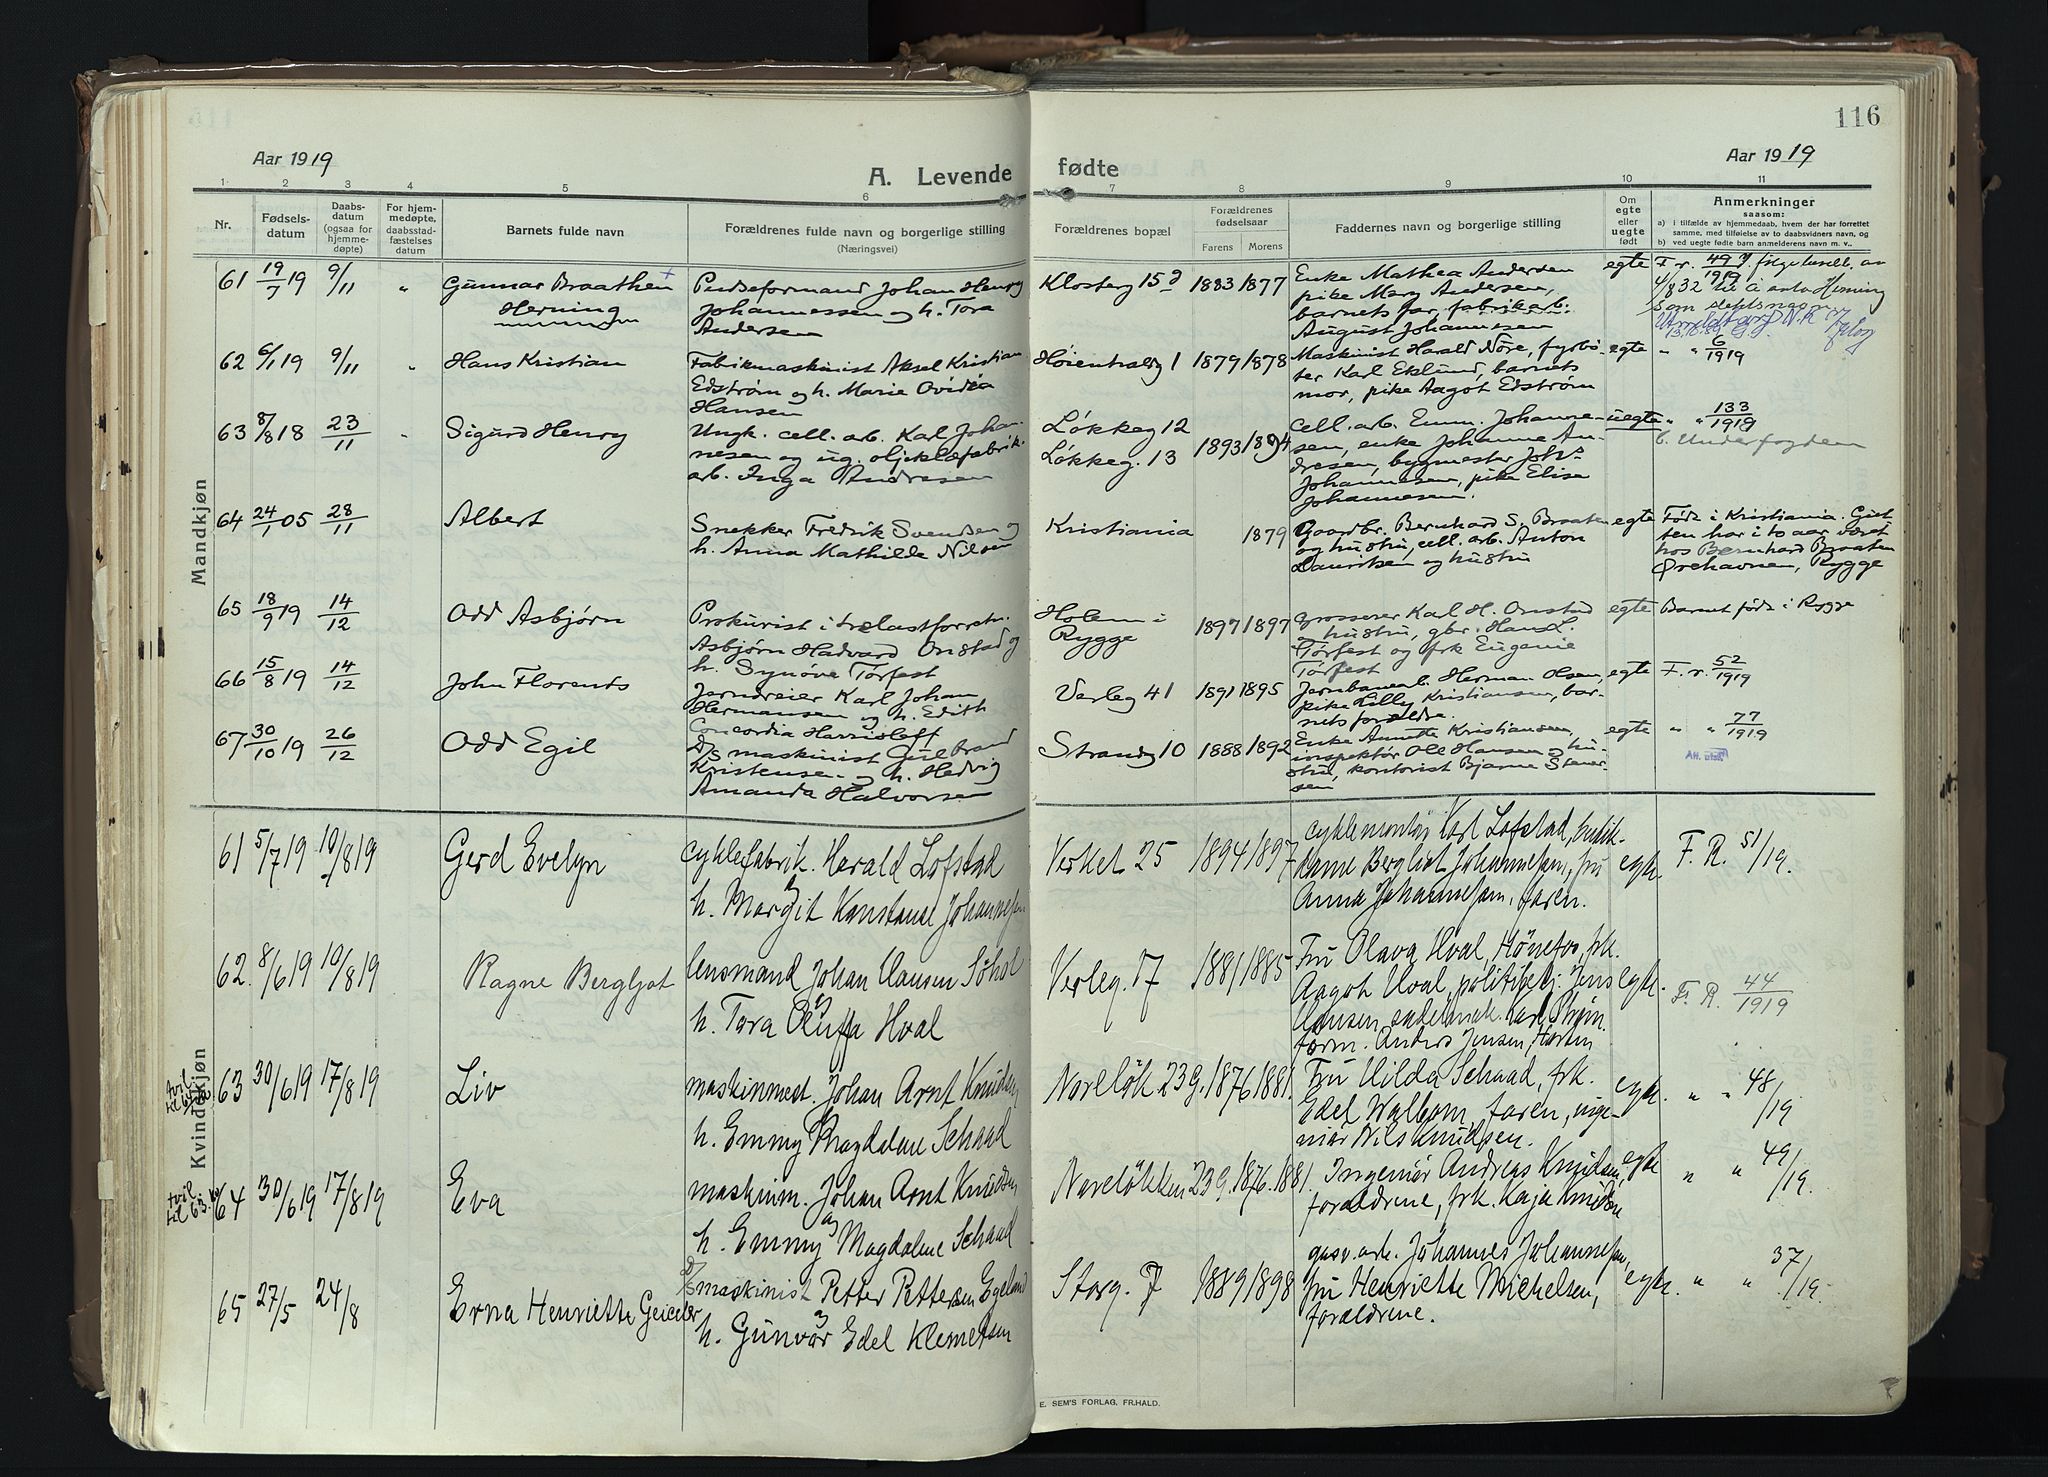 116
Aar 1919
A. Levende
fødte
Aar 1919
1 2 3 4 5 6 7 8 9 10 11
Nr.
Fødsels-
datum
Daabs-
datum
(ogsaa for
hjemme-
døpte)
For hjem-
medøpte,
daabsstad-
fæstelses
datum
Barnets fulde navn
Forældrenes fulde navn og borgerlige stilling
(Næringsvei)
Forældrenes bopæl
Forældrenes
fødselsaar
Farens Morens
Faddernes navn og borgerlige stilling
Om
egte
eller
uegte
født
Anmerkninger
saasom:
a) i tilfælde av hjemmedaab, hvem der har forrettet
samme, med tilføielse av to daabsvidners navn, og
b) ved uegte fødte barn anmelderens navn m. v.,
Mandkjøn
61 19/7 19 9/11 " Gunnar Braathen +
Herning
Pudseformand Johan Henry
Johannessen og h. Tora
Andersen
Klosterg 15 1883 1877
Enke Mathea Andersen
pike Mary Andersen,
barnets far, fabrikarb.
August Johannesen
egte F. r. 49/1919
62 6/1 19 9/11 " Hans Kristian
Fabrikmaskinist Aksel Kristian
Edstrøm og h. Marie Ovidia
Hansen
Høientorvldg 1 1879 1878
Maskinist Harald Nøre, fyrbø-
ter Karl Eklund, barnets
mor, pike Aagot Edstrøm
egte " " 6/1919
63 8/8 18 23/11 " Sigurd Henry
Ungk. cell. arb. Karl Johan-
nesen og ug. oljeklæfabrik-
arb. Inga Andresen
Løkkeg 12
Løkkeg. 13
1893 1894
cell. arb. Emm. Johanne-
sen, enke Johanne An-
dresen, bygmester Johs
Johannesen, pike Elise
Johannesen.
uegte " " 133/1919
b. Underfogden
64 24/1 05 28/11 Albert
Snekker Fredrik Svendsen og
h. Anna Mathilde Nilsen
Kristiania 1879
Gaardbr. Bernhard S. Braaten
og hustru, cell. arb. Anton
Lauritsen og hustru
egte Født i Kristiania. Gut-
ten har i to aar været
hos Bernhard Braaten
Ørehavnen, Rygge
65 18/9 19 14/12 Odd Asbjørn
Prokurist i trelastforretn.
Asbjørn Hadvard Onstad og
h. Synøve Tørfest
Holem i
Rygge
1897 1897
Grosserer Karl H. Onstad
og hustru, gbr. Hans L.
Tørfest og frk Eugenie
Tørfest
egte Barnet født i Rygge
66 15/8 19 14/12 John Florents
Jerndreier Karl Johan
Hermansen og h. Edith
Concordia Harrisleff
Verleg 41 1891 1895
Jernbanearb. Herman Olsen,
pike Lilly Kristiansen, bar-
nets forældre.
egte F. r. 52/1919
67 30/10 19 26/12 Odd Egil
D/s maskinist Gulbrand
Kristensen og h. Hedvig
Amanda Halvorsen
Strandg 10 1888 1892
Enke Annette Kristiansen,
inspektør Ole Hansen og hu-
stru, kontorist Bjarne Stener-
sen
egte " " 77/1919
Att. utst.
Kvindekjøn
61 5/7 19 10/8 19 Gerd Evelyn
cyklefabrik. Harald Lofstad
og
h. Margit Konstanse Johannesen
Verket 25 1894 1897
cyklemontør Karl Lofstad, butik-
dame Bergliot Johannessen, fru
Anna Johannessen, faren.
egte. F. R. 51/19.
62. 8/6 19 10/8 19 Ragne Bergljot
lensmand Johan Hansen Søhol
og
h. Tora Oluffa Hval
Verleg. 17 1881 1885
Fru Olava Hval, Hønefos, frk.
Aagot Hval, politibetj. Jens
Hansen, sadelmak. Karl Thim.
form. Anders Jensen, Horten
egte. F. R. 44/1919
tvil.
til 64
63 30/6 19 17/8 19 Liv
maskinmest. Johan Arnt Knudsen
h. Emmy Magdalene Schaad
Noreløk 23 g. 1876 1881.
Fru Hilda Schaad, frk.
Edel Walbom, faren, inge-
niør Nils Knudsen.
egte. " " 48/19
tvil
til 63.
64 30/6 19 17/8 19 Eva
maskinm. Johan Arnt Knudsen
og
h. Emmy Magdalene Schaad
Noreløkken 23 g. 1876. 1881.
Ingeniør Andreas Knudsen,
forældrene, frk. Kaja Knudsen
egte " " 49/19.
65 27/5 24/8 Erna Henriette Geicler
D/s maskinist Petter Pettersen Egeland
og
h. Gunvor Edel Klemetsen
Storg. 7 1889 1898
gasv. arb. Johannes Johannesen,
fru Henriette Michelsen,
forældrene.
egte. " " 37/19.
E. SEM'S FORLAG, FR.HALD.